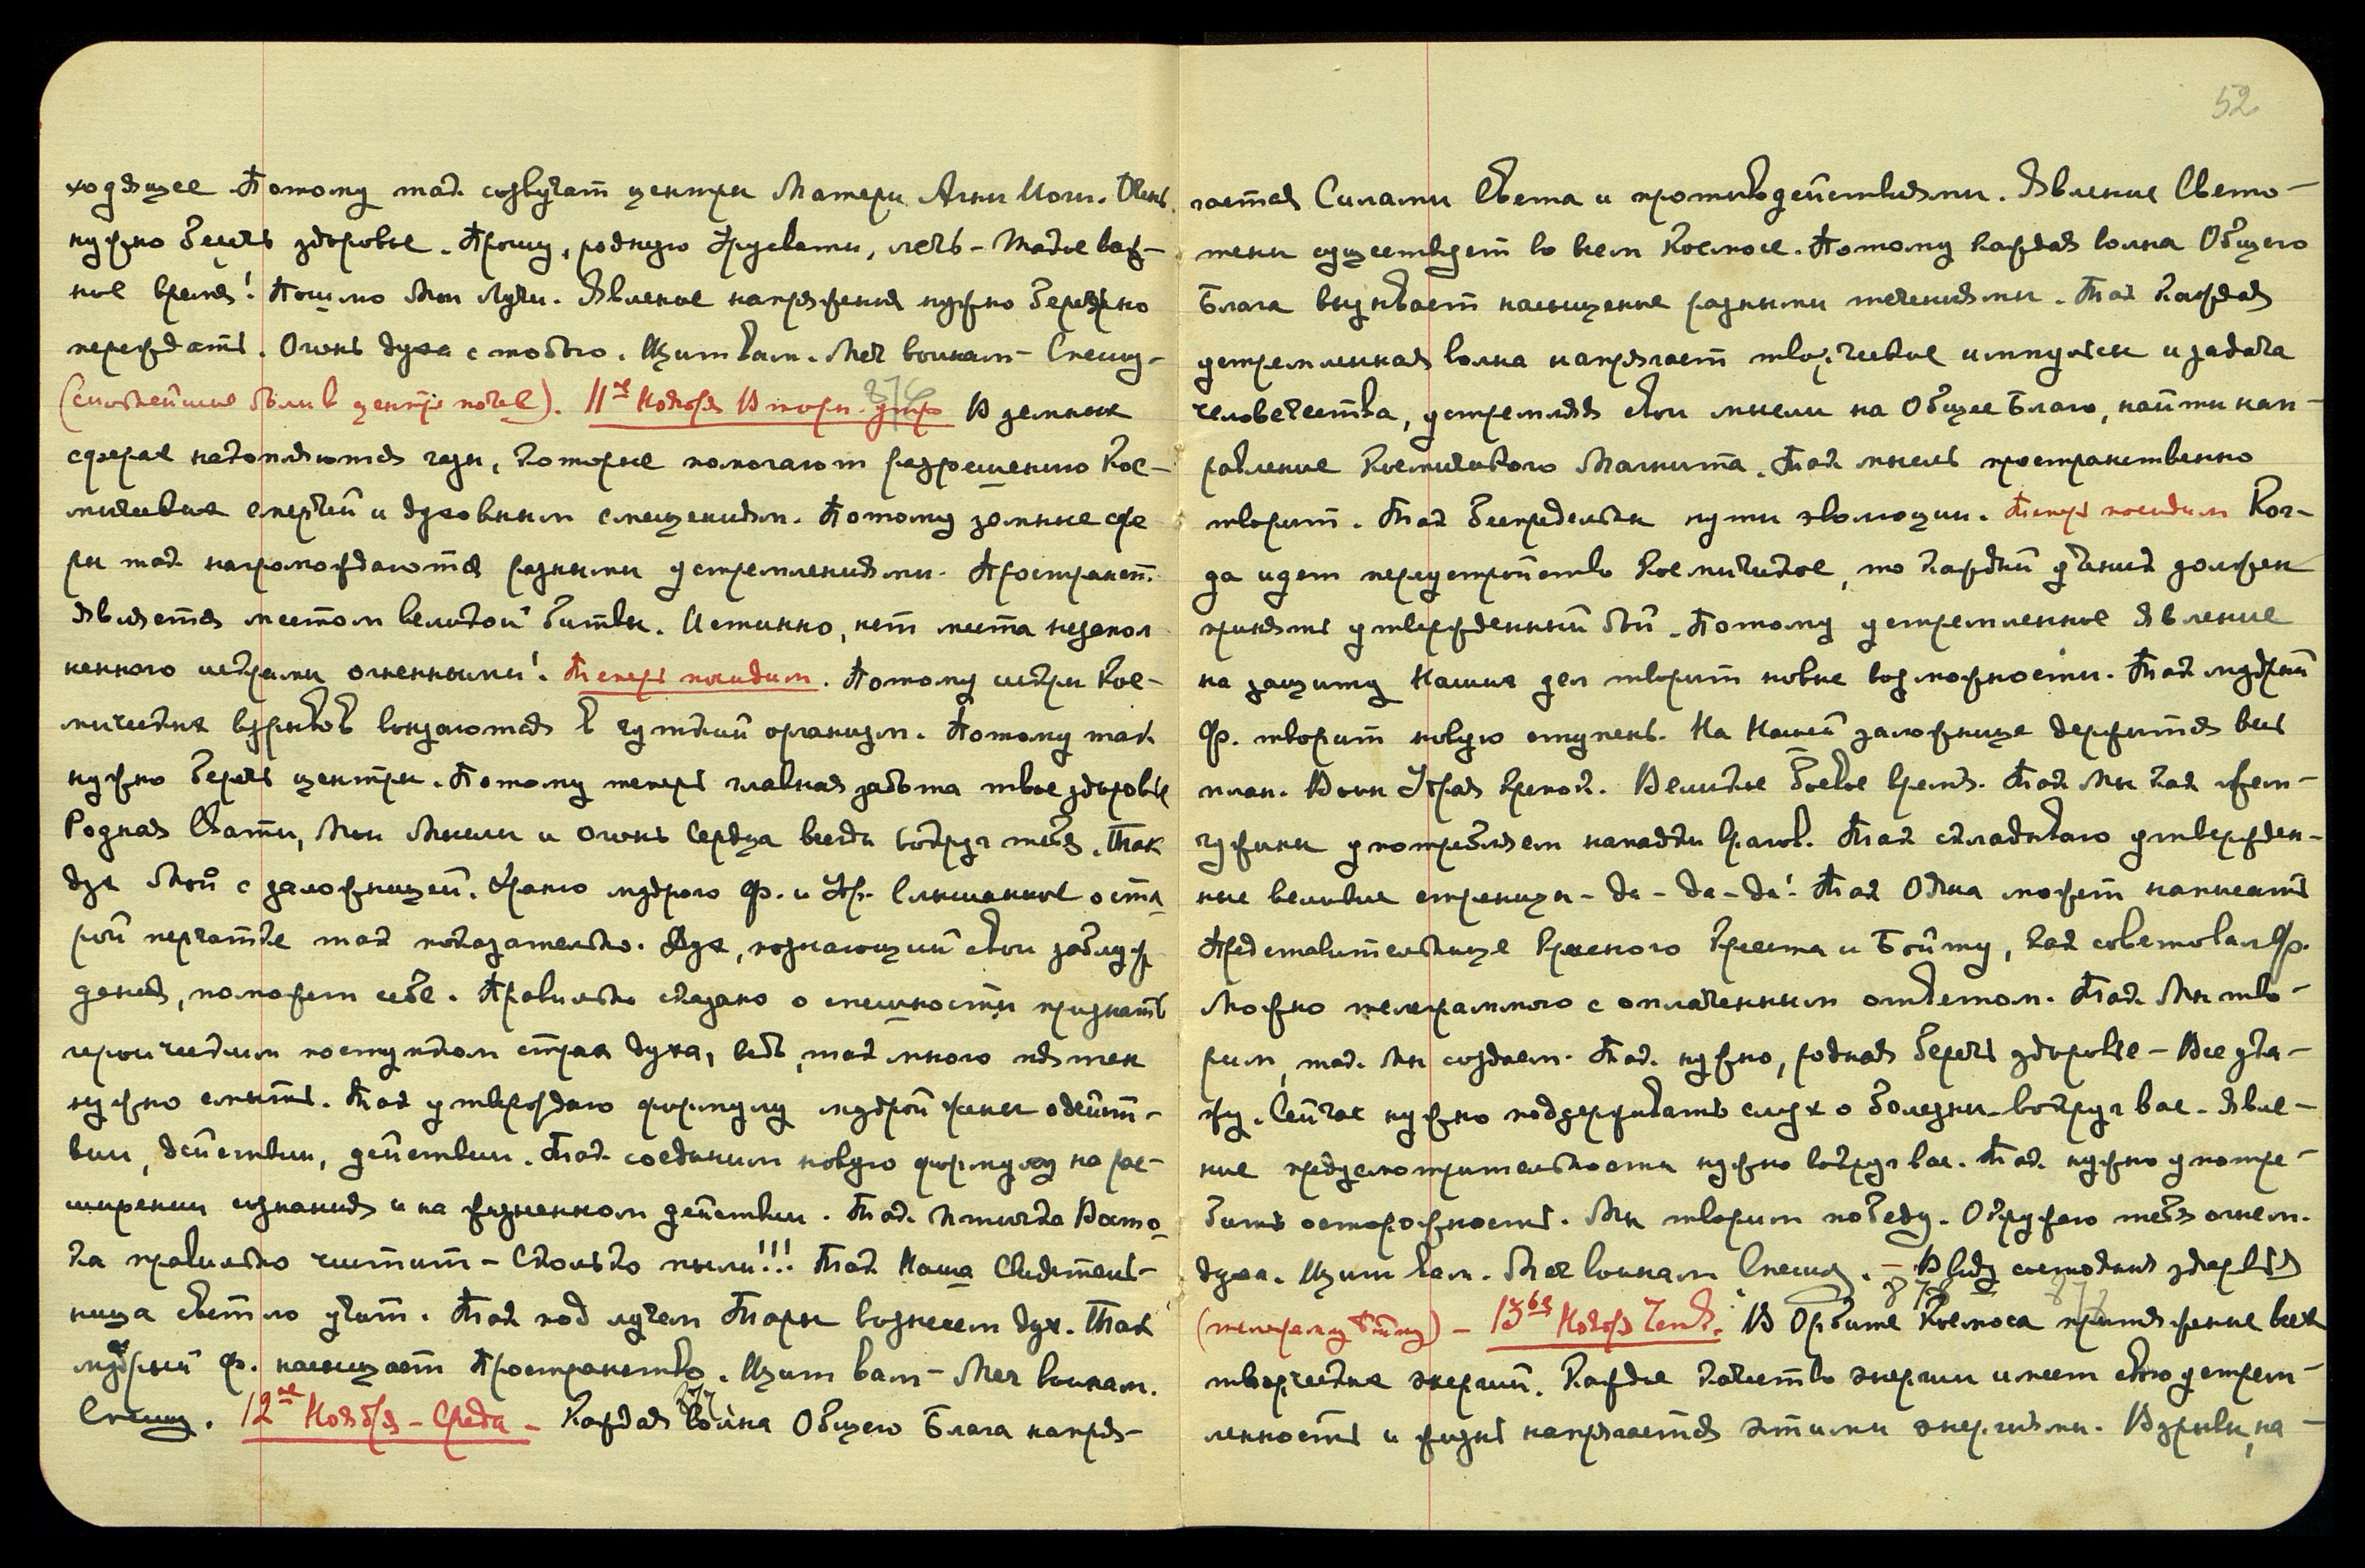 ходящее. Потому так созвучат центры Матери Агни Йоги. Очень
нужно беречь здоровье. Прошу, родную Урусвати, лечь – такое важ–
ное время! Пошлю Мои Лучи. Явление напряжения нужно бережно
переждать. Огонь духа с тобою. Щит вам. Меч воинам – Спешу –
(сильнейшие боли в центре ночью). 11ое Ноября Вторн. утро 376 В земных
сферах накопляются газы, которые помогают разрешению Кос–
мических смерчей и духовным смещениям. Потому земные сфе
ры так нагромождаются разными устремлениями. Пространст.
является местом великой битвы. Истинно, нет места незапол
ненного искрами огненными! Теперь посидим. Потому искры Кос–
мических взрывов вонзаются в чуткий организм. Потому так
нужно беречь центры. Потому теперь главная забота твое здоровье
Родная Свати, Мои Мысли и Огонь Сердца всегда вокруг тебя. Так
дух Мой с заложницей. Храню мудрого Ф. и Ур. Слышанное о ста
рой перчатке так показательно. Дух, познающий свои заблуж
дения, поможет себе. Правильно сказано о спешности признать
героическим поступком страх духа, ведь, так много пятен
нужно смыть. Так утверждаю формулу мудрой жены о дейст–
вии, действии, действии. Так соединим новую формулу на рас–
ширении сознания и на жизненном действии. Так птичка Восто
ка правильно чистит – Сколько пыли!!! Так Наша Свидетель–
ница светло учит. Так под лучем Тары вознесем дух. Так
мудрый Ф. насыщает пространство. Щит вам – Меч воинам.
Спешу. 12ое Ноября – Среда – 377 Каждая война Общего Блага напря–
52
гается Силами Света и противодействиями. Явление Свето–
тени существует во всем Космосе. Потому каждая волна Общего
Блага вызывает насыщение разными течениями. Так каждая
устремленная волна напрягает творческие импульсы и задача
человечества, устремляя свои мысли на Общее Благо, найти нап–
равление Космического Магнита. Так мысль пространственно
творит. Так беспредельны пути эволюции. Теперь посидим Ког–
да идет переустройство Космическое, то каждый ученик должен
принять утвержденный бой. Потому устремленное явление
на защиту Наших дел творит новые возможности. Так мудрый
Ф. творит новую ступень. На Нашей заложнице держится весь
план. Воин Удрая крепок. Великое боевое время. Так Мы как жем–
чужины употребляем нападки врагов. Так складываю утвержден–
ные великие страницы – да – да – да! Так Ояна может написать
Представительнице Красного Креста и Бойту, как советовал Ф.
Можно телеграммою с оплаченным ответом. Так Мы тво–
рим, так Мы создаем. Так нужно, родная беречь здоровье – Все ука–
жу. Сейчас нужно поддерживать слух о болезни вокруг вас. Явле–
ние предусмотрительности нужно вокруг вас. Так нужно употре–
бить осторожность. Мы творим победу. Окружаю тебя огнем
духа. Щит вам. Меч воинам Спешу. – Ввиду состояния здоровья
(телеграмму Бойту) – 13ое Ноября Четв. 378 В Орбите Космоса притяжение всех
творческих энергий. Каждое качество энергии имеет свою устрем–
ленность и жизнь напрягается этими энергиями. Взрывы, на–